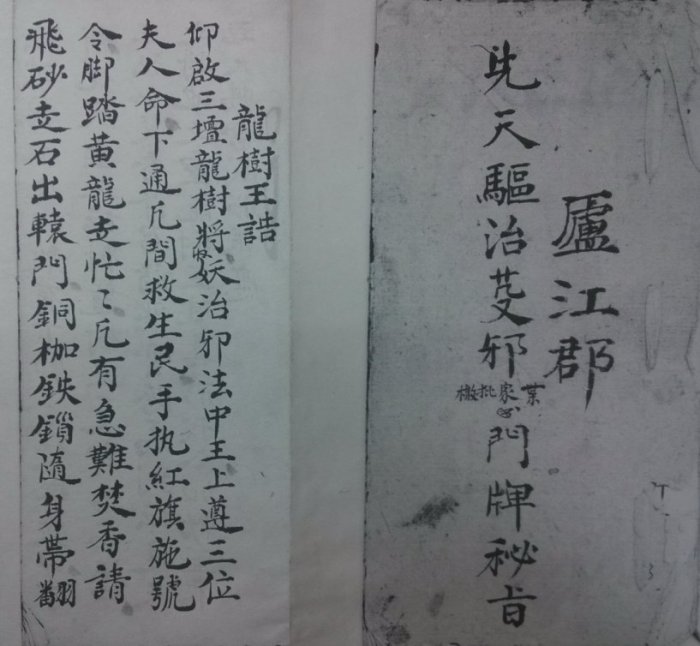 廬江郡
先天驅治芟邪門牌秘旨
龍樹王誥
仰啟三壇龍樹將妖治邪法中王上遵三位
夫人命下通凢間救生民手执紅旗施號
令脚踏黄龍走忙〻凢有急難焚香請
飛砂走石出轅門銅枷鉄鎖隨身帶翻